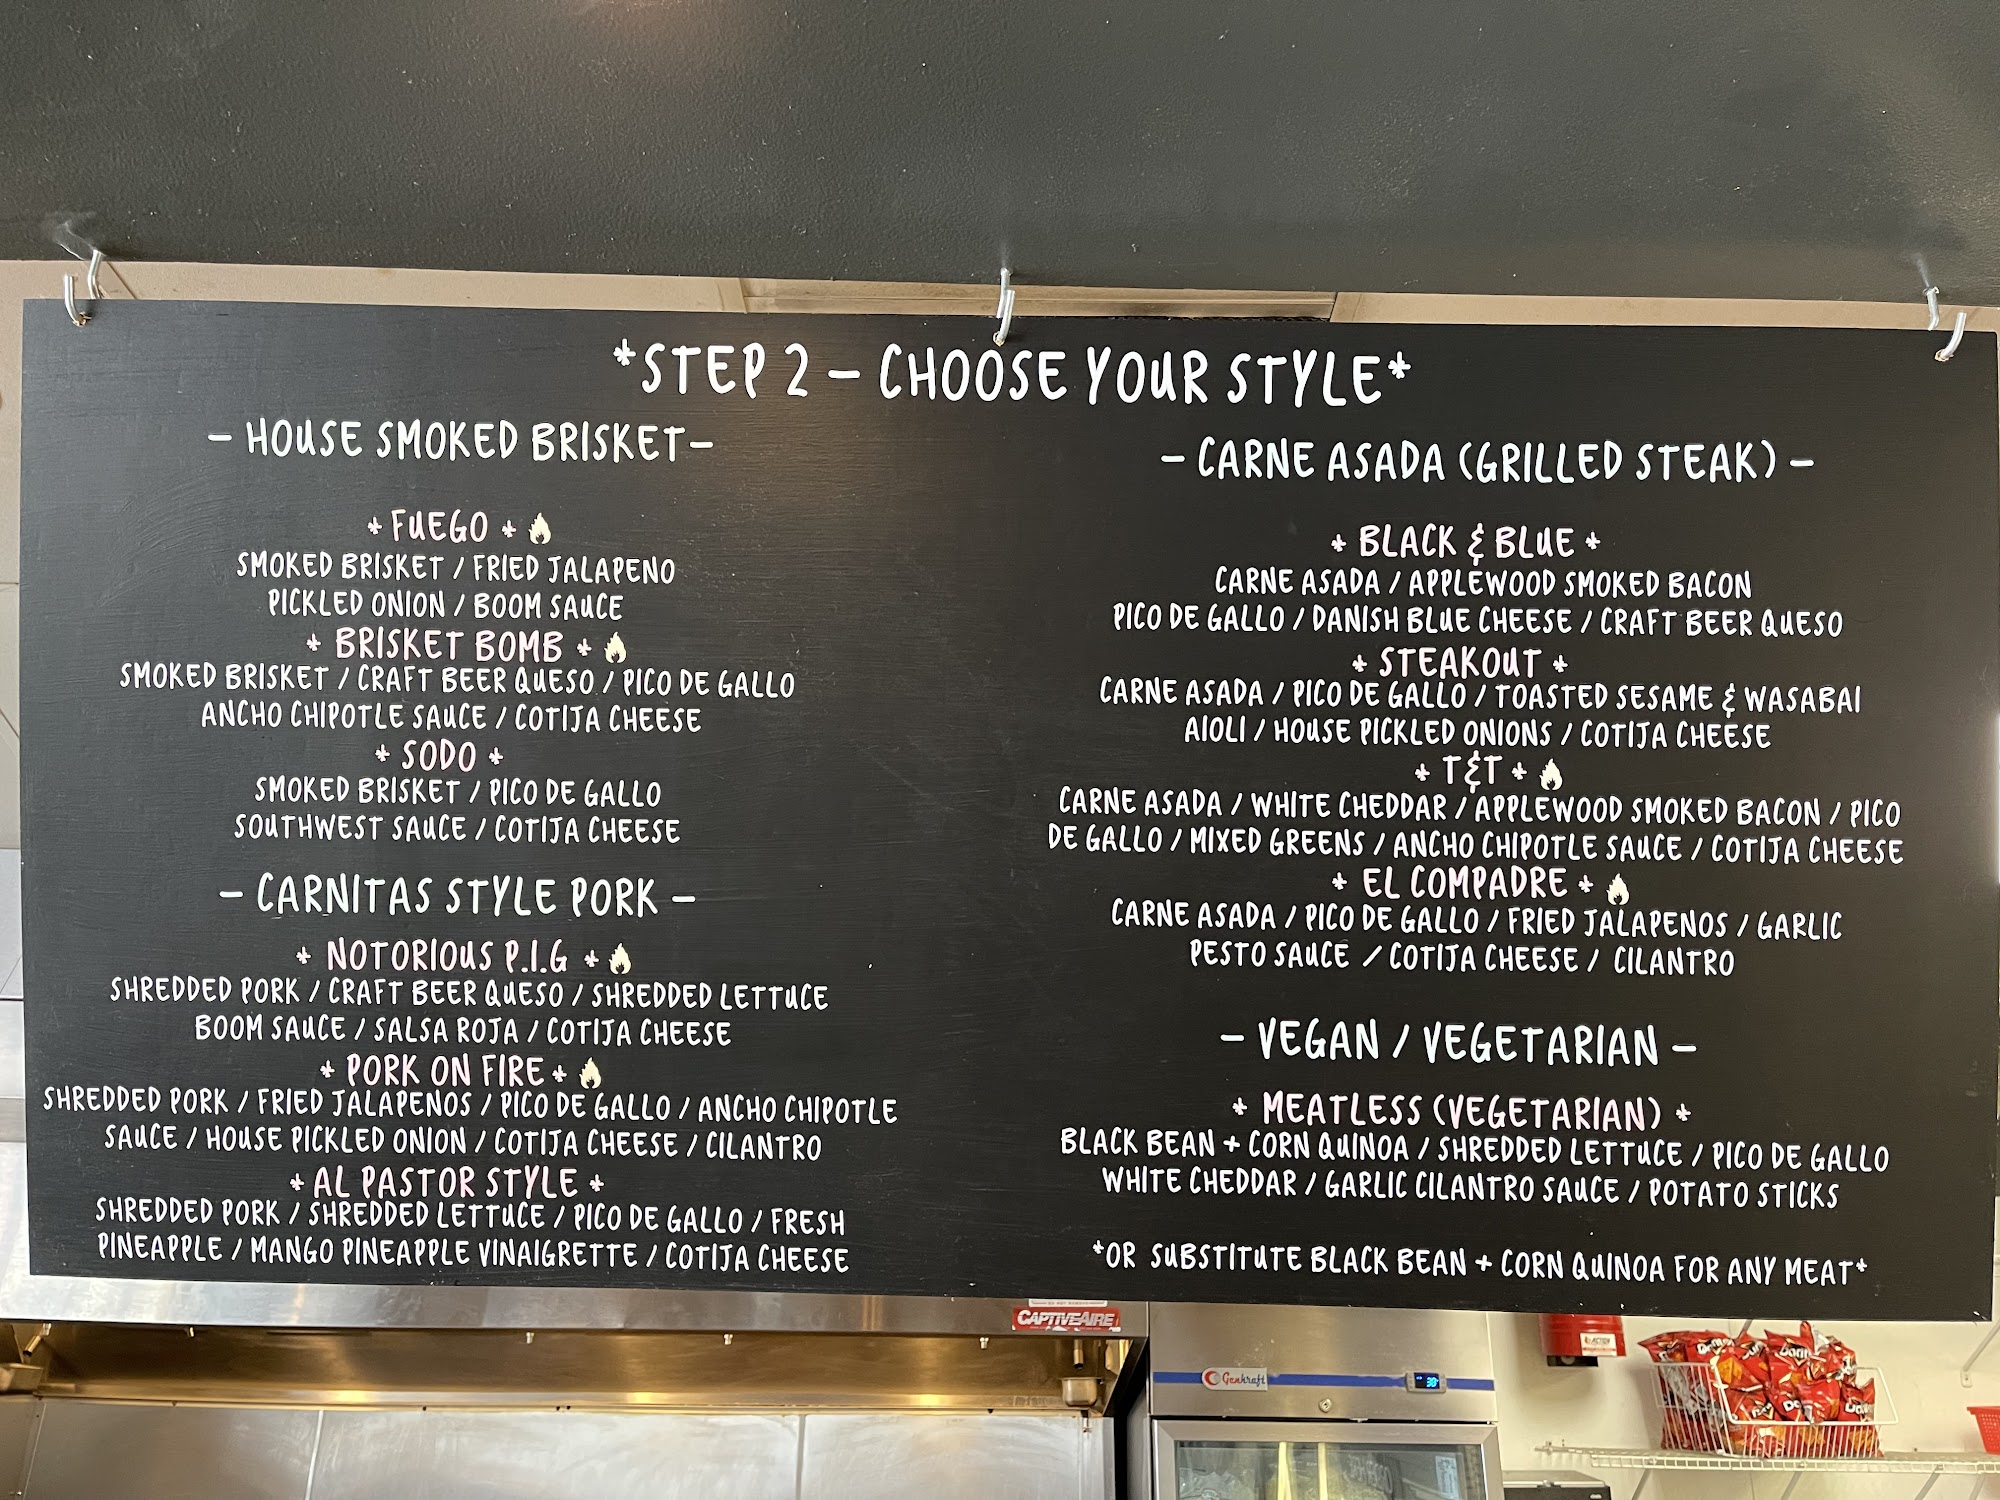 *STEP 2 – CHOOSE YOUR STYLE*
– HOUSE SMOKED BRISKET –
* FUEGO *
SMOKED BRISKET / FRIED JALAPENO
PICKLED ONION / BOOM SAUCE
* BRISKET BOMB *
SMOKED BRISKET / CRAFT BEER QUESO / PICO DE GALLO
ANCHO CHIPOTLE SAUCE / COTIJA CHEESE
* SODO *
SMOKED BRISKET / PICO DE GALLO
SOUTHWEST SAUCE / COTIJA CHEESE
– CARNITAS STYLE PORK –
* NOTORIOUS P.I.G *
SHREDDED PORK / CRAFT BEER QUESO / SHREDDED LETTUCE
BOOM SAUCE / SALSA ROJA / COTIJA CHEESE
* PORK ON FIRE *
SHREDDED PORK / FRIED JALAPENOS / PICO DE GALLO / ANCHO CHIPOTLE
SAUCE / HOUSE PICKLED ONION / COTIJA CHEESE / CILANTRO
* AL PASTOR STYLE *
SHREDDED PORK / SHREDDED LETTUCE / PICO DE GALLO / FRESH
PINEAPPLE / MANGO PINEAPPLE VINAIGRETTE / COTIJA CHEESE
– CARNE ASADA (GRILLED STEAK) –
* BLACK & BLUE *
CARNE ASADA / APPLEWOOD SMOKED BACON
PICO DE GALLO / DANISH BLUE CHEESE / CRAFT BEER QUESO
* STEAKOUT *
CARNE ASADA / PICO DE GALLO / TOASTED SESAME & WASABAI
AIOLI / HOUSE PICKLED ONIONS / COTIJA CHEESE
* T&T *
CARNE ASADA / WHITE CHEDDAR / APPLEWOOD SMOKED BACON / PICO
DE GALLO / MIXED GREENS / ANCHO CHIPOTLE SAUCE / COTIJA CHEESE
* EL COMPADRE *
CARNE ASADA / PICO DE GALLO / FRIED JALAPENOS / GARLIC
PESTO SAUCE / COTIJA CHEESE / CILANTRO
– VEGAN / VEGETARIAN –
* MEATLESS (VEGETARIAN) *
BLACK BEAN + CORN QUINOA / SHREDDED LETTUCE / PICO DE GALLO
WHITE CHEDDAR / GARLIC CILANTRO SAUCE / POTATO STICKS
*OR SUBSTITUTE BLACK BEAN + CORN QUINOA FOR ANY MEAT*
CAPTIVEAIRE
Genkraft
Doritos